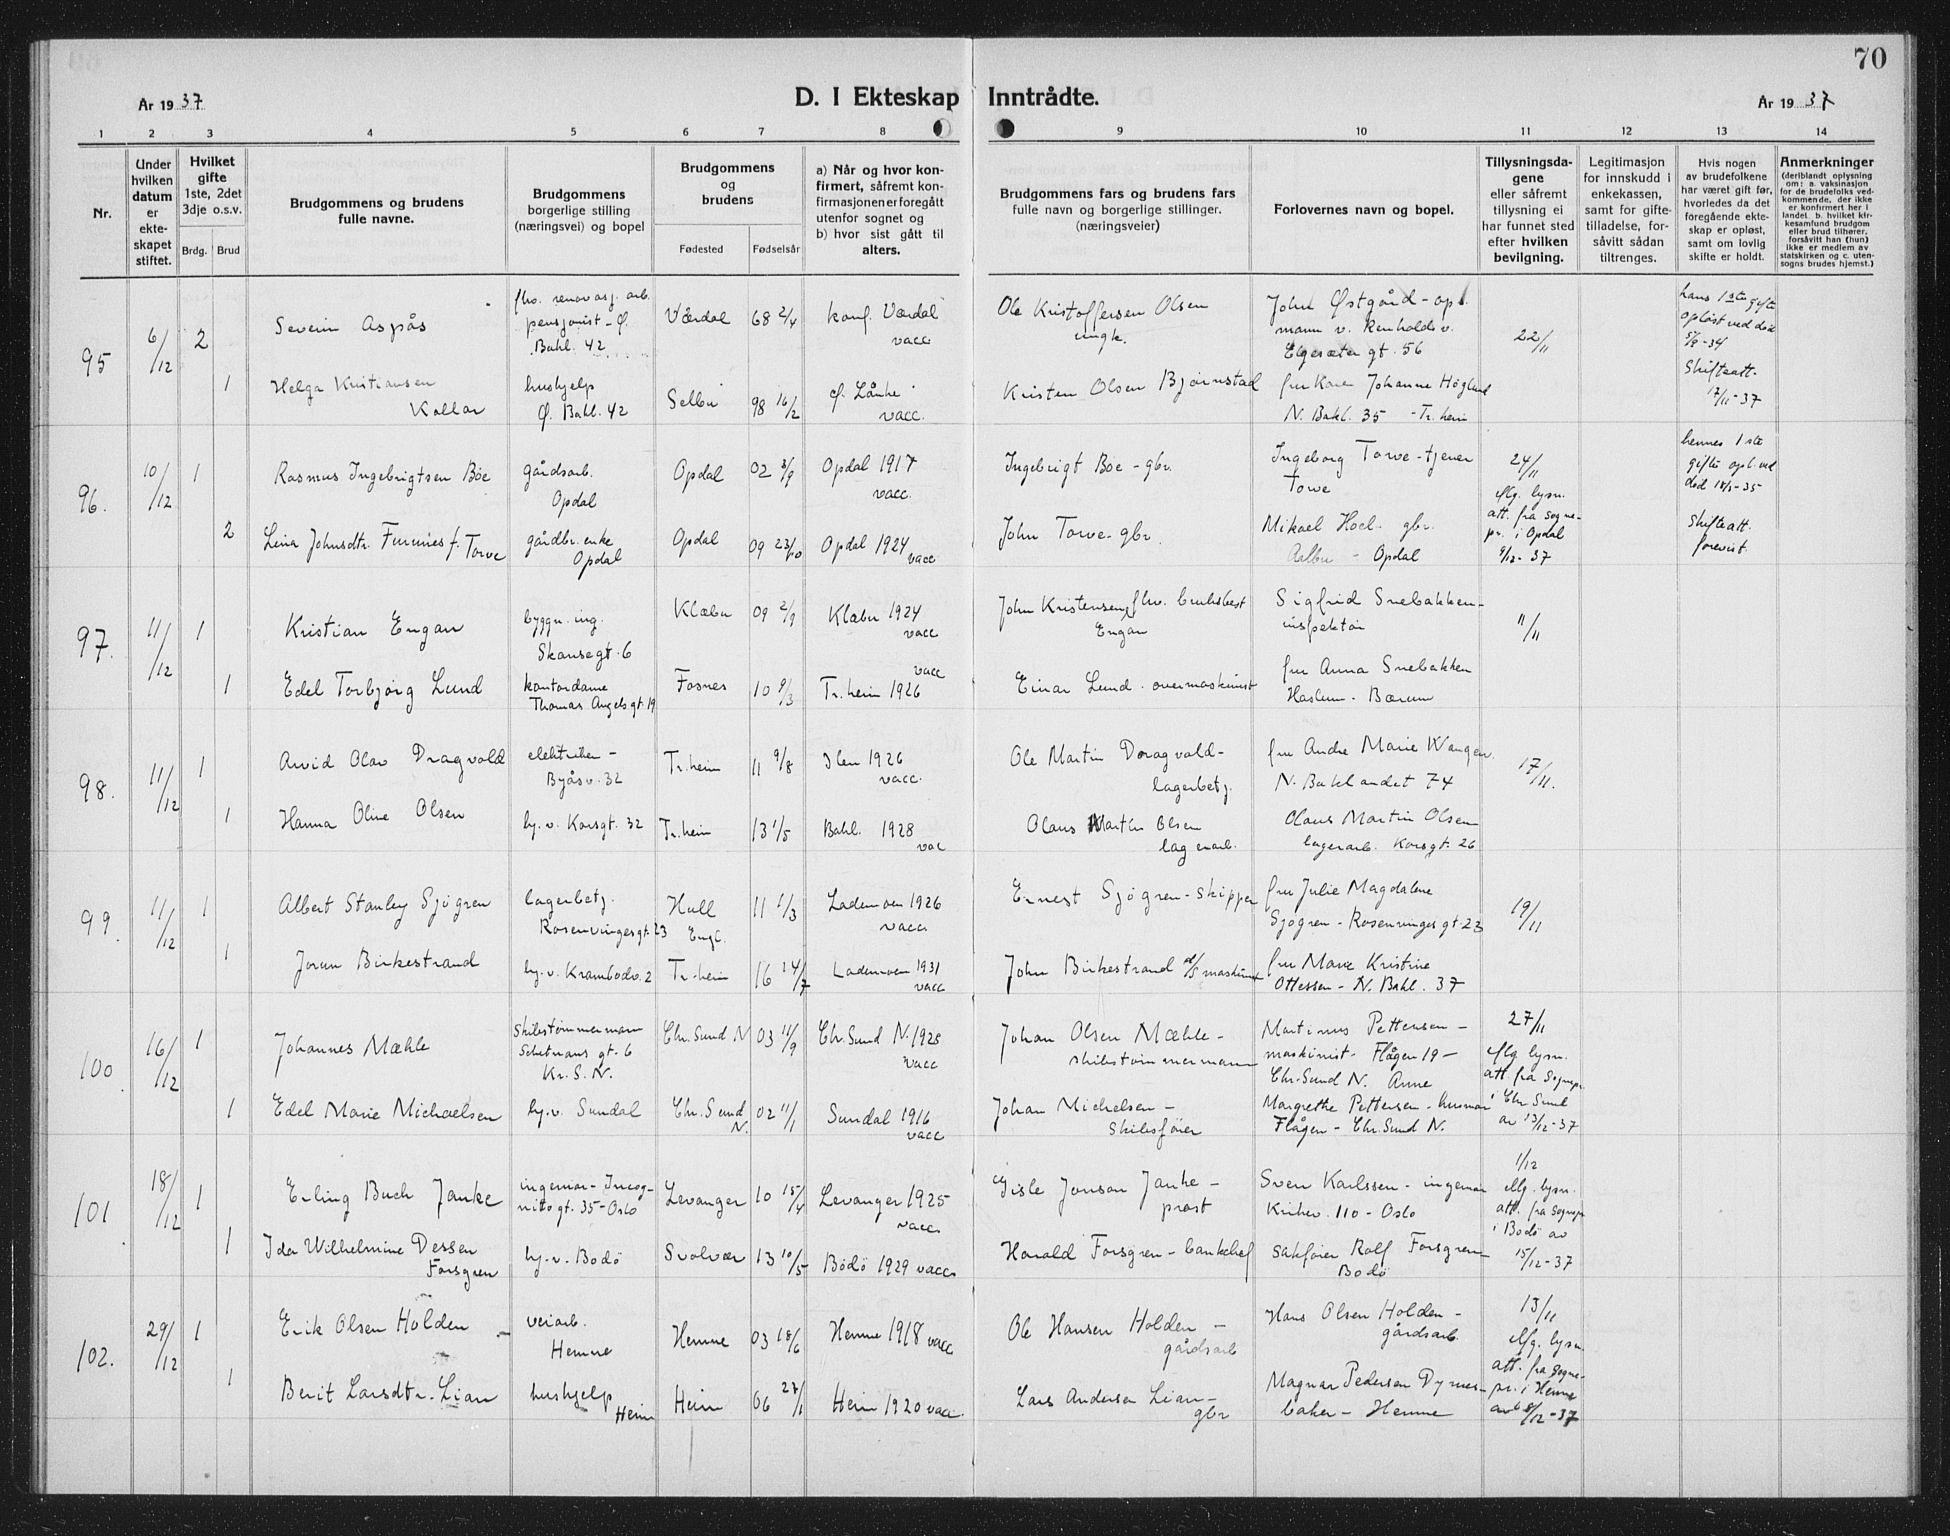 70
År 1937
D. I Ekteskap Inntrådte.
År 1937
1 2 3 4 5 6 7 8 9 10 11 12 13 14
Nr.
Under hvilken datum er ekteskapet stiftet.
Hvilket gifte 1ste, 2det 3dje o.s.v.
Brdg. Brud
Brudgommens og brudens fulle navne.
Brudgommens borgerlige stilling (næringsvei) og bopel
Brudgommens og brudens
Fødested Fødselsår
a) Når og hvor konfirmert, såfremt konfirmasjonen er foregått utenfor sognet og
b) hvor sist gått til alters.
Brudgommens fars og brudens fars fulle navn og borgerlige stillinger. (næringsveier)
Forlovernes navn og bopel.
Tillysningsdagene eller såfremt tillysning ei har funnet sted efter hvilken bevilgning.
Legitimasjon for innskudd i enkekassen, samt for giftetilladelse, forsåvitt sådan tiltrenges.
Hvis nogen av brudefolkene har været gift før, hvorledes da det foregående ekteskap er opløst, samt om lovlig skifte er holdt.
Anmerkninger (deriblandt oplysning om: a. vaksinasjon for de brudefolks vedkommende, der ikke er konfirmert her i landet. b. hvilket kirkesamfund brudgom eller brud tilhører, forsåvitt han (hun) ikke er medlem av statskirken og c. utensogns brudes hjemst.)
95 6/12 2 Severin Aspås fhv. renovasj. arb. pensjonist - Ø. Bakl. 42 Værdal 68 2/4 konf. Værdal vacc Ole Kristoffersen Olsen ungk. John Østgård - opl. mann v. Renholdsv. Elgesæter gt 56 22/11 hans 1ste gifte opløst ved død 5/8-34
1 Helga Kristiansen Kollar hushjelp Ø. Bakl. 42 Selbu 98 16/2 Ø. Lånke vacc. Kristen Olsen Bjørnstad fru Karen Johanne Höglund N. Bakl. 35 - Tr.heim Skifteatt. 17/11-37
96. 10/12 1 Rasmus Ingebrigtsen Böe gårdsarb. Opdal Opdal 02 3/9 Opdal 1917 vacc. Ingebrigt Böe - gbr. Ingeborg Torve - tjener Torve 24/11 iflg. lysn. att. fra sognepr. i Opdal 9/12-37 hennes 1ste gifte opl. ved död 18/5-35
2 Lina Johnsdtr. Furunes f. Torve gårdbr. enke Opdal Opdal 09 23/10 Opdal 1924 vacc John Torve - gbr. Mikael Hoel gbr. Aalbu - Opdal Skifteatt. forevist.
97. 11/12 1 Kristian Engan byggn. ing. Skansegt. 6 Klæbu 09 2/9 Klæbu 1924 vacc John Kristensen Engan fhv. bruksbest Sigfrid Snebakken - inspektør 11/11
1 Edel Torbjörg Lund kontordame Thomas Angels gt. 19 Fosnes 10 9/3 Tr.heim 1926 vacc Einar Lund - overmaskinist fru Anna Snebakken Haslum - Bærum
98. 11/12 1 Arvid Olav Dragvold elektriker - Byåsv. 32 Tr.heim 11 9/8 Ilen 1926 vacc. Ole Martin Dragvold - lagerbetj. fru Andre Marie Wangen N. Baklandet 74 17/11.
1 Hanna Oline Olsen hj. v. Korsgt. 32 Tr.heim 13 1/5 Bakl. 1928 vac Olaus Martin Olsen lagerarb. Olaus Martin Olsen lagerarb. Korsgt. 26
99. 11/12 1 Albert Stanley Sjögren lagerbetj. Rosenvingesgt. 23 Hull Engl. 11 1/3 Lademoen 1926 vacc Ernest Sjögren - skipper fru Julie Magdalene Sjögren - Rosenvinges gt. 23 19/11
1 Jorun Birkestrand hj. v. Krambodv. 2 Tr.heim 16 24/7 Lademoen 1931 vacc John Birkestrand maskinist fru Marie Kristine Ottessen - N. Bakl. 37
100. 16/12 1 Johannes Mæhle skibstömmermann gt. 6 Kr. S. N. Chr. Sund N 03 11/9 Chr. Sund N. 1925 vacc Johan Olsen Mæhle - skibstömmermann Martinus Pettersen - maskinist - Flågen 19 - Chr. Sund N. 27/11 iflg. lysn. att. fra sognepr. i Chr Sund av 13/12-37
1 Edel Marie Michaelsen hj. v. Sundal Chr. Sund N. 02 11/1 Sundal 1916 vacc Johan Michelsen - skibsförer Anne Margrethe Pettersen - husmor Flågen - Chr. Sund N.
101. 18/12 1 Erling Buch Janke ingeniør - Incognito gt. 35 - Oslo Levanger 10 15/4 Levanger 1925 vacc Gisle Jonson Janke - prost Sven Karlssen - ingeniør Kirkev. 110 - Oslo 1/12 iflg. lysn. att. fra sognepr i Bodö av 15/12-37
1 Ida Wilhelmine Dessen Forsgren hj. v. Bodö Svolvær 13 10/5 Bödö 1929 vacc Harald Forsgren - banksjef sakförer Rolf Forsgren - Bodö
102. 29/12 1 Erik Olsen Holden veiarb. Hemne Hemne 03 18/6 Hemne 1918 vacc Ole Hansen Holden - gårdsarb Hans Olsen Holden - gårdsarb. 13/11 iflg. lysn. att. fra sognepr. i Hemne av 8/12-37
1 Berit Larsdtr. Lian hushjelp Heim Heim 06 27/1 Heim 1920 vacc. Lars Andersen Lian - gbr Magnar Pedersen Dyrnes - baker - Hemne